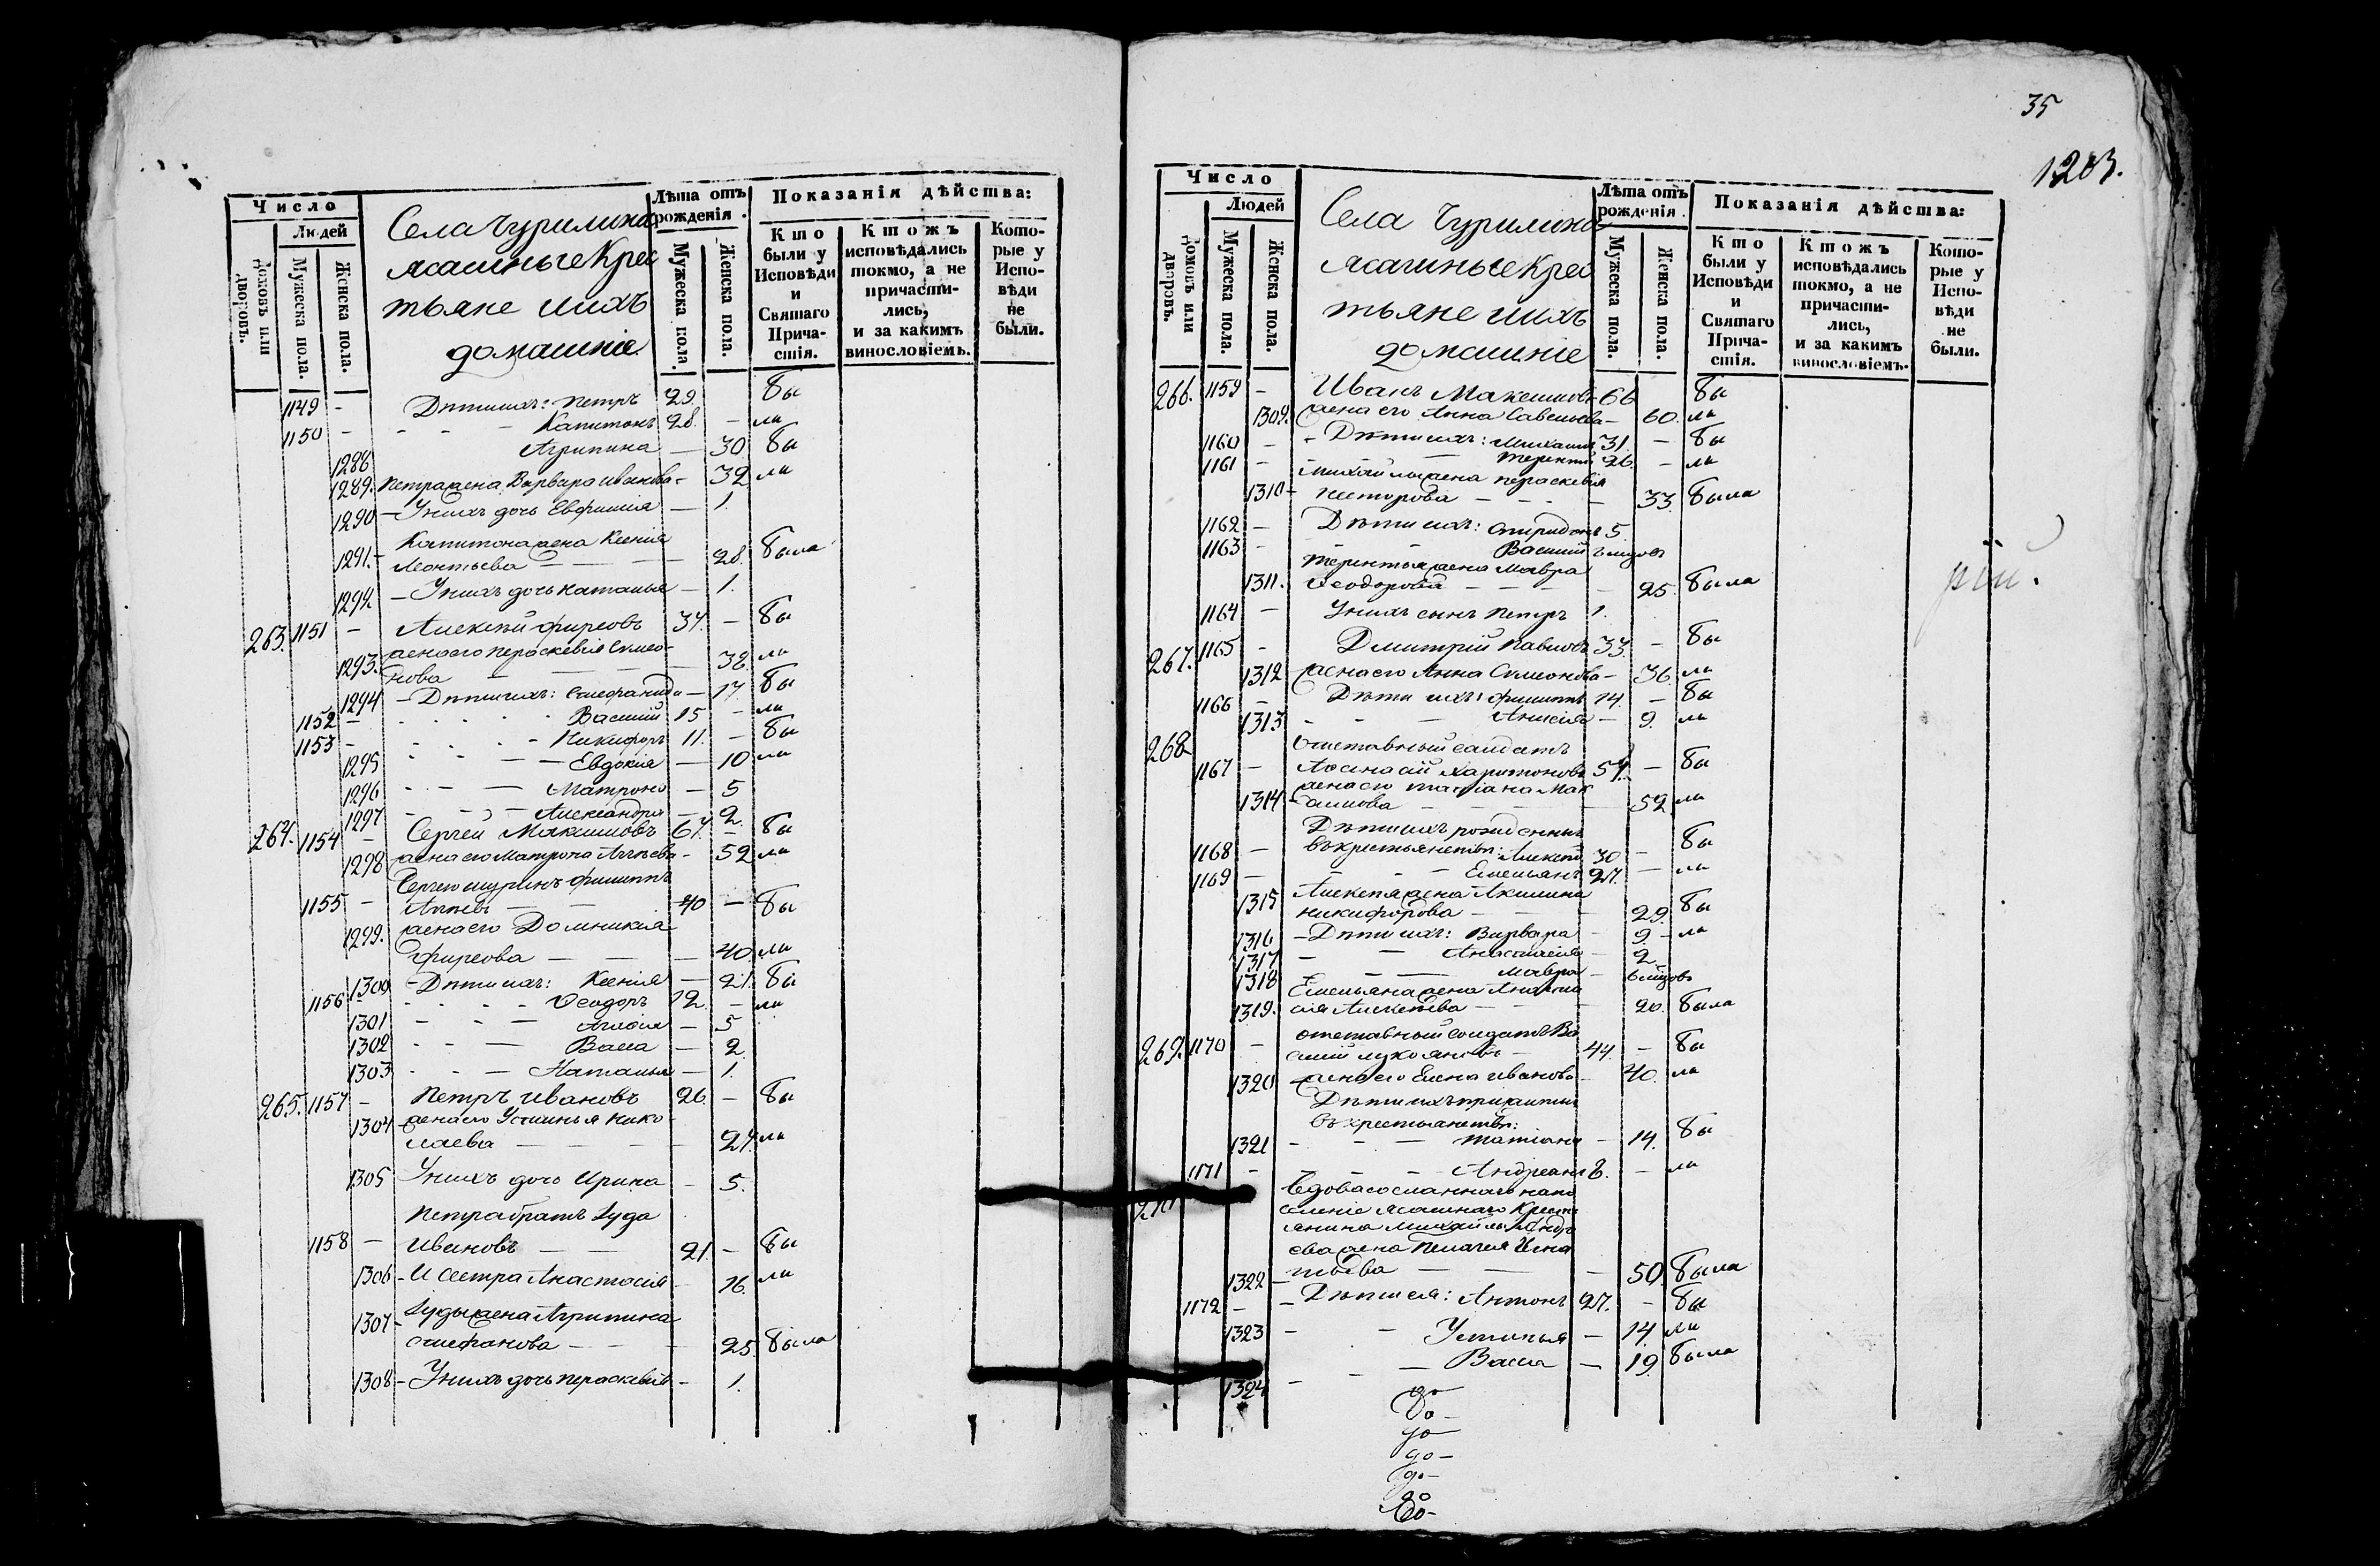 Число
Людей
Домовъ или дворовъ.
Мужеска пола.
Женска пола.
Села Чурилина
ясашные Крес
тьяне иихъ
домашніе.
Лѣта отъ рожденія.
Мужеска пола.
Женска пола.
Показанія дѣйства:
Кто были у Исповѣди и Святаго Прича-стія.
Ктожъ исповѣдались токмо, а не причасти-лись, и за какимъ винословіемъ.
Кото-рые у Испо-вѣди не были.
1149 - Дѣти ихъ: Петръ 29. бы
1150 - Капитонъ 28. - ли
1288 Агрипина - 30 бы
1289. Петра жена Варвара Иванова - 32 ли
1290 - У нихъ дочь Евфимія - 1.
Капитона жена Ксенія
1291. - Леонтьева - 28. была
1292 - У нихъ дочь Наталья - 1.
263. 1151 - Алексѣй Фирсовъ 34. - бы
жена его Параскевія Симео-
1293. нова - 38. ли
1294 - Дѣти ихъ: Стефанида - 17. бы
1152 - Василій 15 - ли
1153 - Никифоръ 11. - бы
1295 Евдокія - 10 ли
1296 Матрона - 5
1297 Александра - 2.
264. 1154 - Сергей Максимовъ 64. - бы
1298 жена его Матрона Агѣева - 52 ли
Сергею шуринъ Филиппъ
1155 - Агѣевъ 40 - бы
1299. жена его Домникія
Фирсова - 40. ли
1300 - Дѣти ихъ: Ксенія - 21. бы
1156 Ѳеодоръ 12. - ли
1301 Агафія - 5
1302 Васса - 2.
1303 Наталья - 1.
265. 1157 - Петръ Ивановъ 26. - бы
1304 - жена его Устинья Нико
лаева - 24. ли
1305 У нихъ дочь Ирина - 5.
Петра братъ Іуда
1158 - Ивановъ 21. - бы
1306 - И сестра Анастасія - 16. ли
1307 - Іуды жена Агрипина
Стефанова - 25. была
1308 - У нихъ дочь Параскевія - 1.
35
1203.
Число
Людей
Домовъ или дворовъ.
Мужеска пола.
Женска пола.
Села Чурилина
ясашные Крес
тьяне иихъ
домашніе
Лѣта отъ рожденія.
Мужеска пола.
Женска пола.
Показанія дѣйства:
Кто были у Исповѣди и Святаго Прича-стія.
Ктожъ исповѣдались токмо, а не причасти-лись, и за какимъ винословіемъ.
Кото-рые у Испо-вѣди не были.
266. 1159 - Иванъ Максимовъ 66 бы
1309. жена его Анна Савельева - 60. ли
1160 - Дѣти ихъ: Михаилъ 31. - бы
1161 - Терентій 26. - ли
Михайлы жена Параскевія
1310 - Несторова - 33. была
1162 - Дѣти ихъ: Спиридонъ 5.
1163 - Василій
Терентья жена Мавра
1311. Ѳеодорова - 25. была
1164 - У нихъ сынъ Петръ 1.
267. 1165 - Дмитрій Павловъ 33. - бы
1312 жена его Анна Симеонова - 36. ли
1166 - Дѣти ихъ: Филиппъ 14. - бы
1313 - Анисія - 9. ли
268 Отставный салдатъ
1167 - Аѳанасій Харитоновъ 54. - бы
жена его Татіана Мак
1314 - симова - 52 ли
Дѣти ихъ рожденныя
1168 - въ крестьянствѣ: Алексѣй 30 - бы
1169 - Емельянъ 27. - ли
1315 Алексѣя жена Акилина
Никифорова - 29. бы
1316 - Дѣти ихъ: Варвара - 9. - ли
1317 Анастасія - 2.
1318 Мавра -
Емельяна жена Анаста
1319. сія Алексѣева - 20. была
269. 1170 - Отставный солдатъ Ва
силій Лукояновъ - 44. - бы
1320 - жена его Елена Иванова - 40. ли
Дѣти ихъ прижитыя
въ крестьянствѣ:
1321 - Татіана - 14. бы
1171 - Андреанъ 8. - ли
270 Вдова сосланнаго на по
селеніе ясашнаго Крестья
янина Михайлы Андре
ева жена Пелагея Игна
1322 - тьева - 50. была
1172 - Дѣти ея: Антонъ 27. - бы
1323 - Устинья - 14. ли
1324 - Васса - 19. была
до-
до-
до-
до-
до-
до-